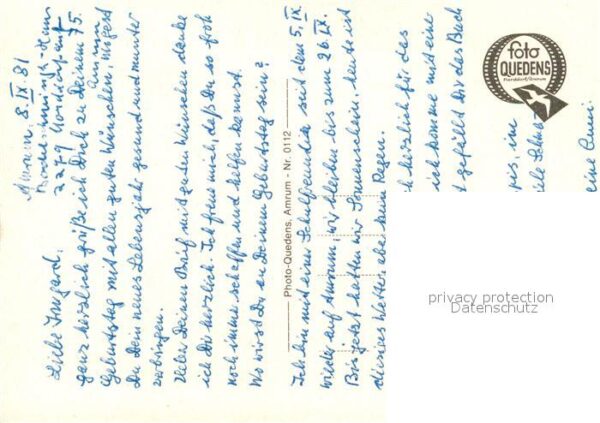 Amrum, 8. IX 81
Bodelschwingh-Haus
2279 Norddorf auf
Amrum
Liebe Irmgard,
ganz herzlich grüße ich Dich zu Deinem 75.
Geburtstag mit allen guten Wünschen, mögest
Du Dein neues Lebensjahr gesund und munter
verbringen.
Für Deinen Brief mit guten Wünschen danke
ich Dir herzlich. Ich freue mich, daß Du so froh
noch immer schaffen und helfen kannst.
Wo wirst Du an Deinem Geburtstag sein?
Photo-Quedens, Amrum - Nr. 0112
Ich bin mit einer Schulfreundin seit dem 5. IX
wieder auf Amrum, wir bleiben bis zum 26. IX.
Bis jetzt hatten wir Sonnenschein, heute ist
diesiges Wetter, aber kein Regen.
h herzlich für das
ich komme und eine
t gefällt Dir das Buch
foto
QUEDENS
Norddorf/Amrum
privacy protection
Datenschutz